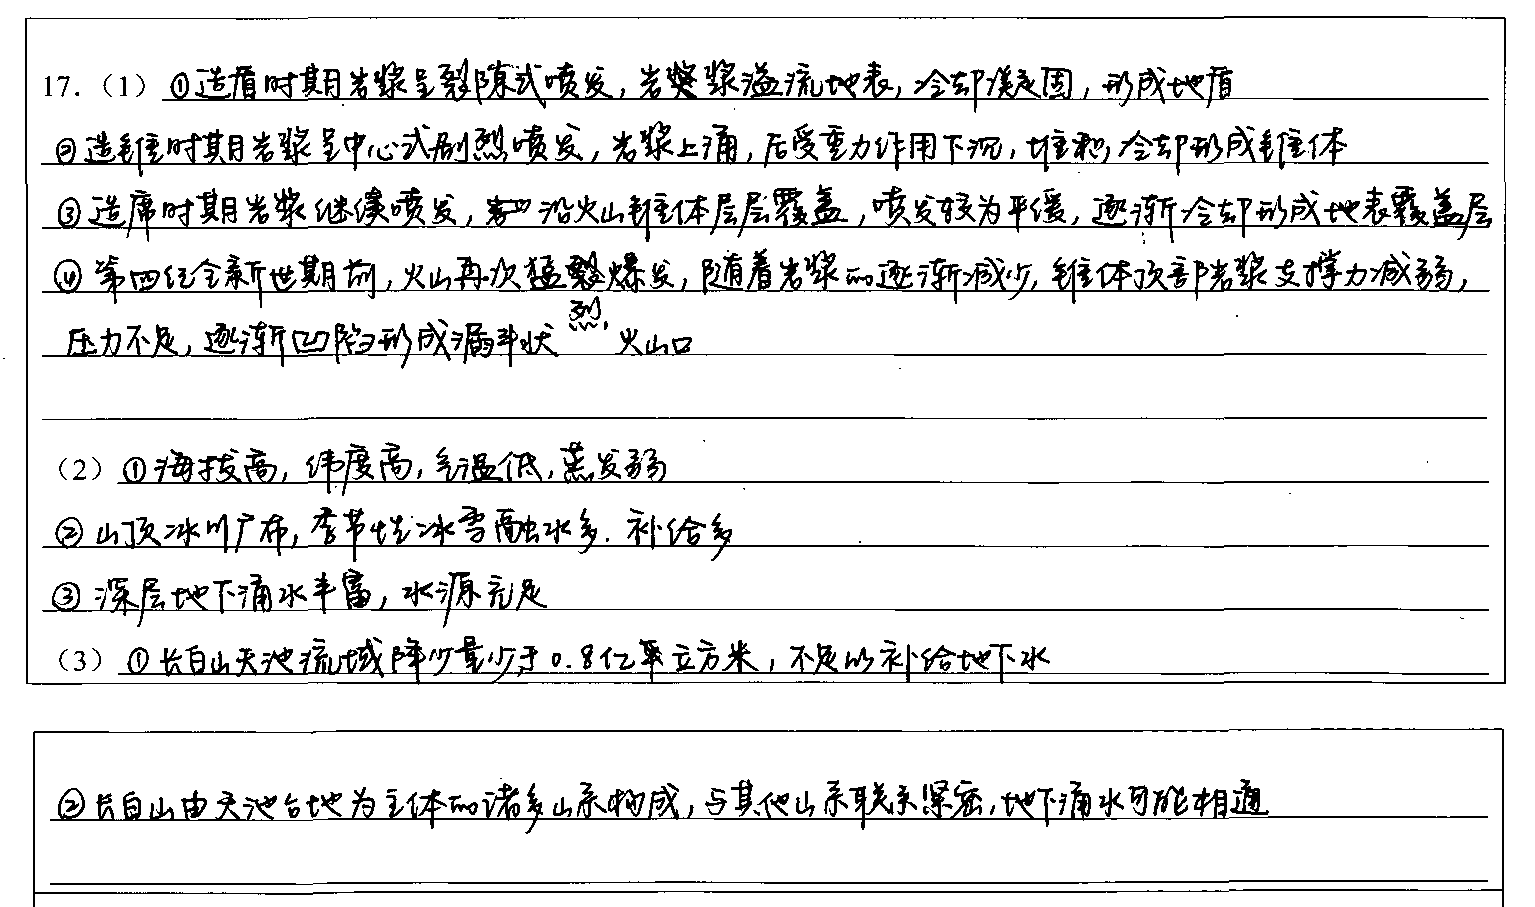 17.（1）①造盾时期岩浆呈裂隙式喷发，岩浆溢流地表，冷却凝固，形成地盾
②造锥时期岩浆呈中心式剧烈喷发，岩浆上涌，后受重力作用下沉，堆积，冷却形成锥体
③造席时期岩浆继续喷发，沿火山锥体层层覆盖，喷发较为平缓，逐渐冷却形成地表覆盖层
④第四纪全新世期前，火山再次猛烈爆发，随着岩浆的逐渐减少，锥体顶部岩浆支撑力减弱，
压力不足，逐渐凹陷形成漏斗状火山口
（2）①海拔高，纬度高，气温低，蒸发弱
②山顶冰川广布，季节性冰雪融水多．补给多
③深层地下涌水丰富，水源充足
（3）①长白山天池流域降少量少于0.8亿立方米，不足以补给地下水
②长白山由天池台地为主体的诸多山系构成，与其他山系联系紧密，地下涌水可能相通